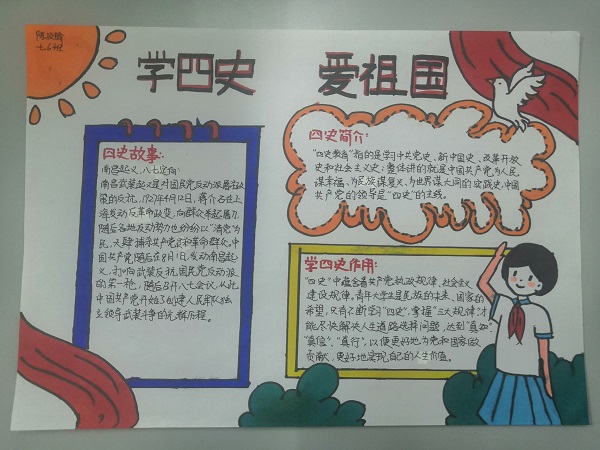 七6班
学四史 爱祖国
四史故事:
南昌起义,八七定向
南昌武装起义是对国民党反动派屠杀政
策的反抗,1927年4月12日,蒋介石在上
海发动反革命政变,向群众举起屠刀
随后各地反动势力也纷纷以“清党”为
民,大肆捕杀共产党员和革命群众,中
国共产党随后在8月1日,发动南昌起
义,打响武装反抗国民党反动派
的第一枪,随后召开八七会议,从此
中国共产党开始了创建人民军队独
立领导武装斗争的光辉历程。
四史简介:
“四史教育”指的是学习中共党史、新中国史、改革开放
史和社会主义史;整体讲的就是中国共产党为人民
谋幸福、为民族谋复兴、为世界谋大同的实践史,中国
共产党的领导是“四史”的主线。
学四史作用:
“四史”中蕴含着共产党执政规律、社会主义
建设规律,青年大学生是民族的未来、国家的
希望,只有不断学习“四史”,掌握“三大规律”才
能尽快解决人生道路选择问题,达到“真知”
“真信”、“真行”,以便更好地为党和国家做
贡献,更好地实现自己的人生价值。